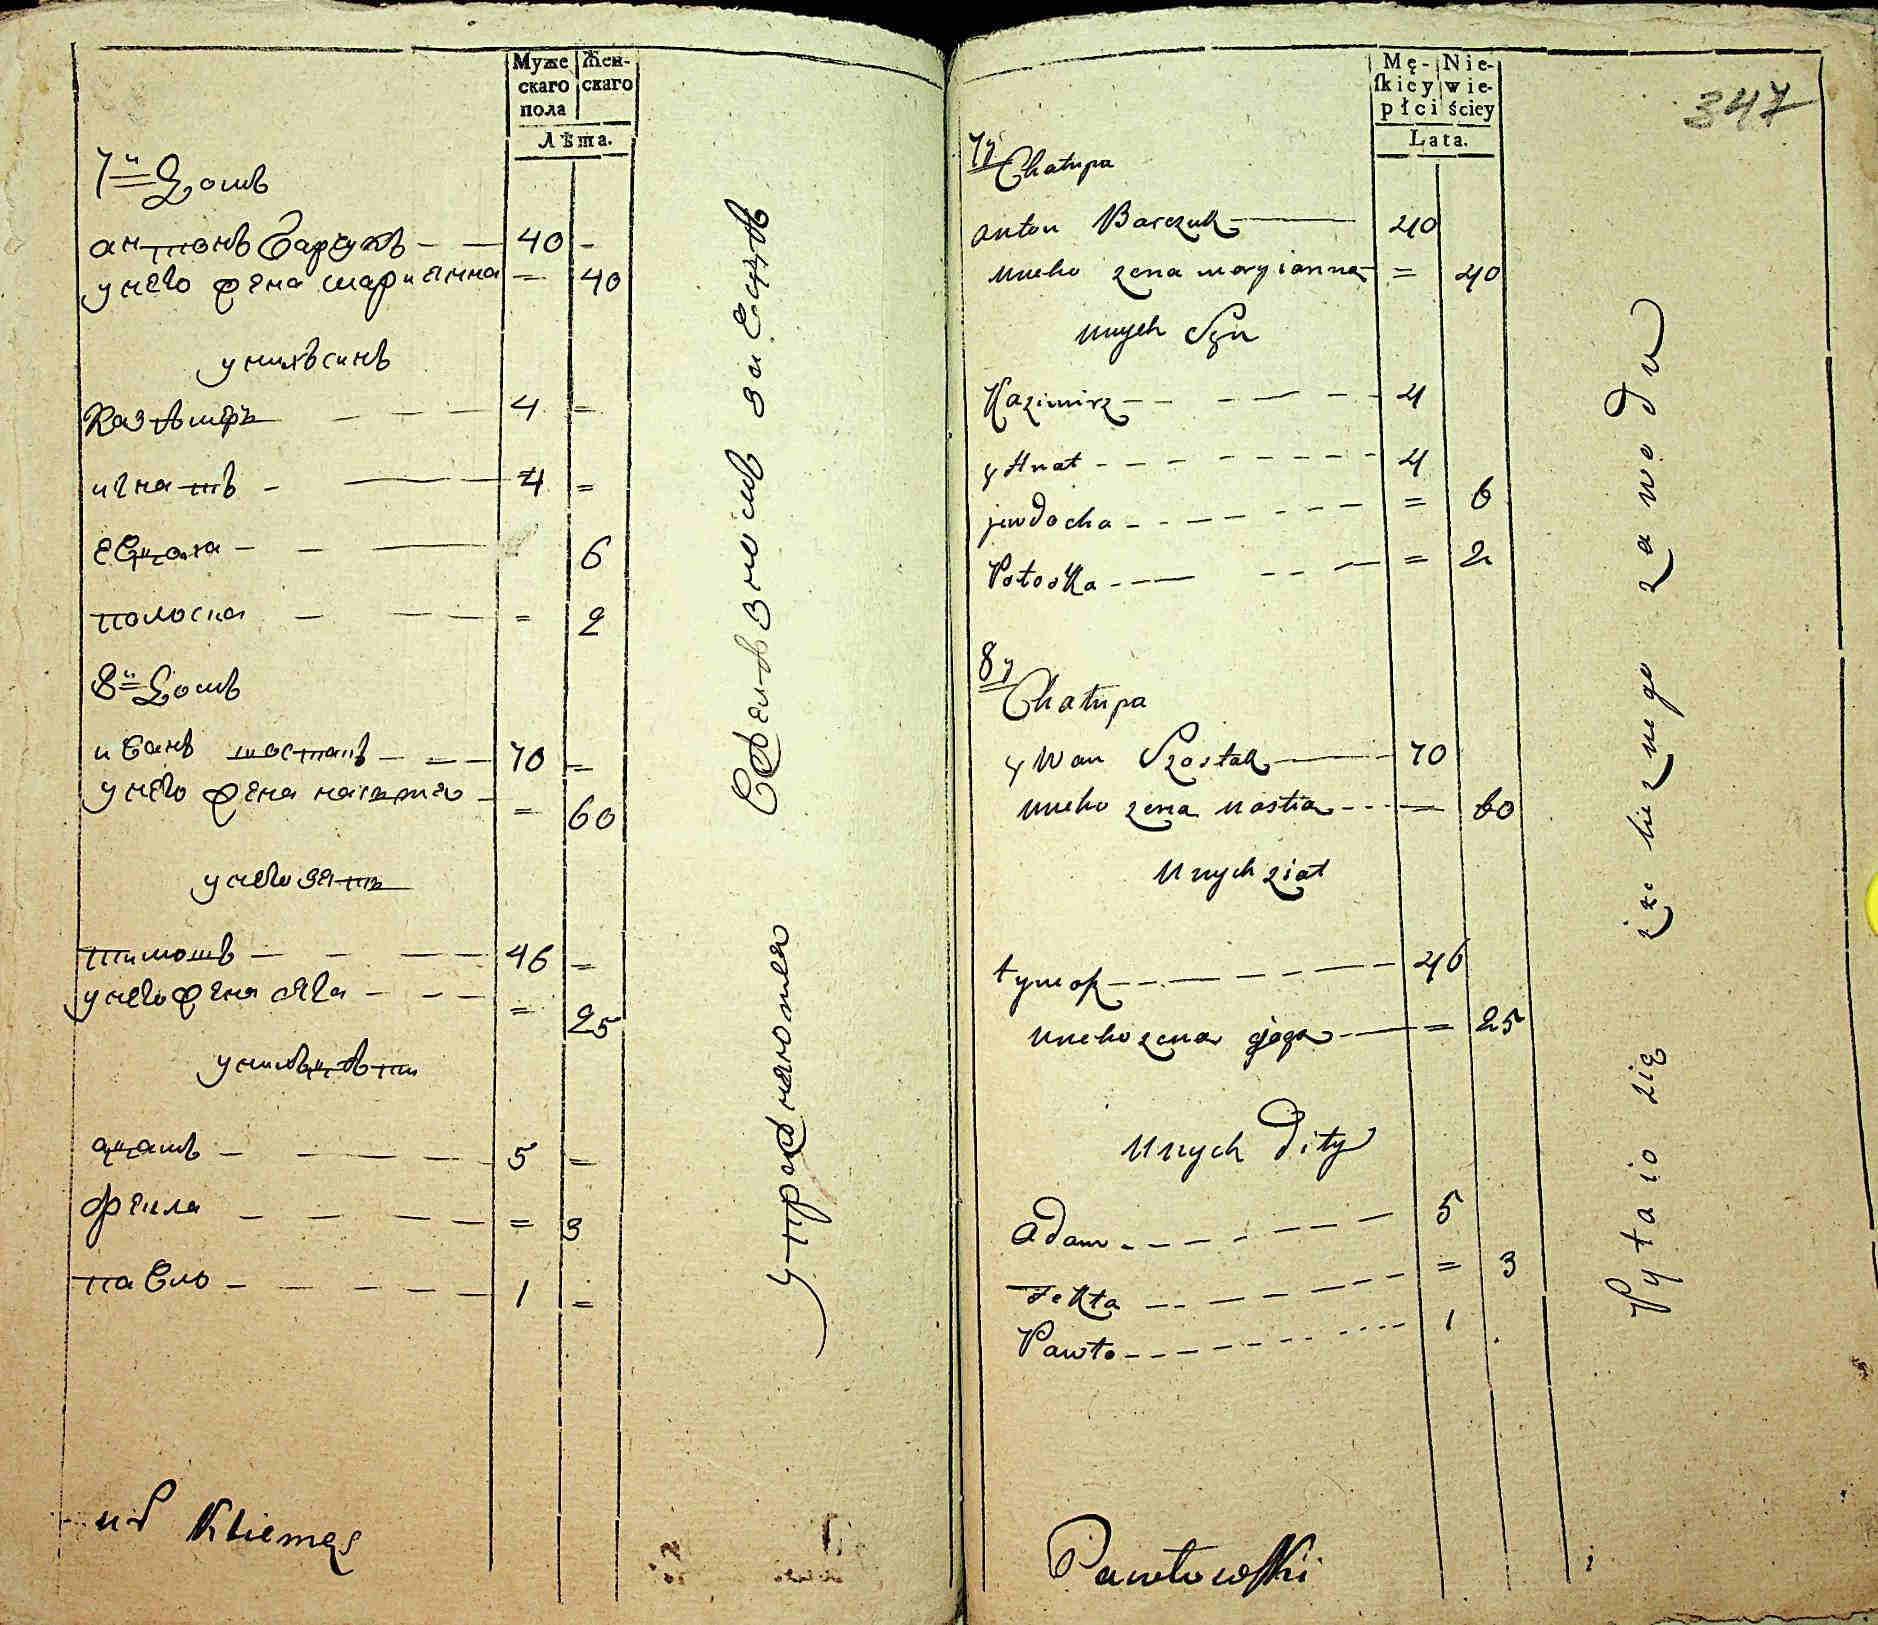 Муже
скаго
пола
Жен-
скаго
Лѣта.
7й Домъ
антонъ барчукъ 40 -
унего жена марианна = 40
унихъ синъ
казѣмеръ 4 =
игнатъ 4 =
евдоха 6
полоска = 2
8й Домъ
иванъ шостакъ 70 =
унего жена настя = 60
унего зять
тимошъ 46 =
унего жена яга = 25
унихъ дѣти
адамъ 5 =
фекла = 3
павло 1 =
Kliemęs
347
Mę-
skiey
płci
Nie-
wie-
ściey
Lata.
7y Chałupa
anton Barczuk 40
uneho zena maryianna = 40
unych Syn
Kazimirz 4
yHnat 4
jewdocha = 6
Połoska = 2
8y Chałupa
yWan Szostak 70
uneho zena nastia = 60
Unych ziat
tymosz 46
uneho zena jaga = 25
Unych dity
adam 5
Fekła = 3
Pawło 1
Pytaio się
Pawłowski